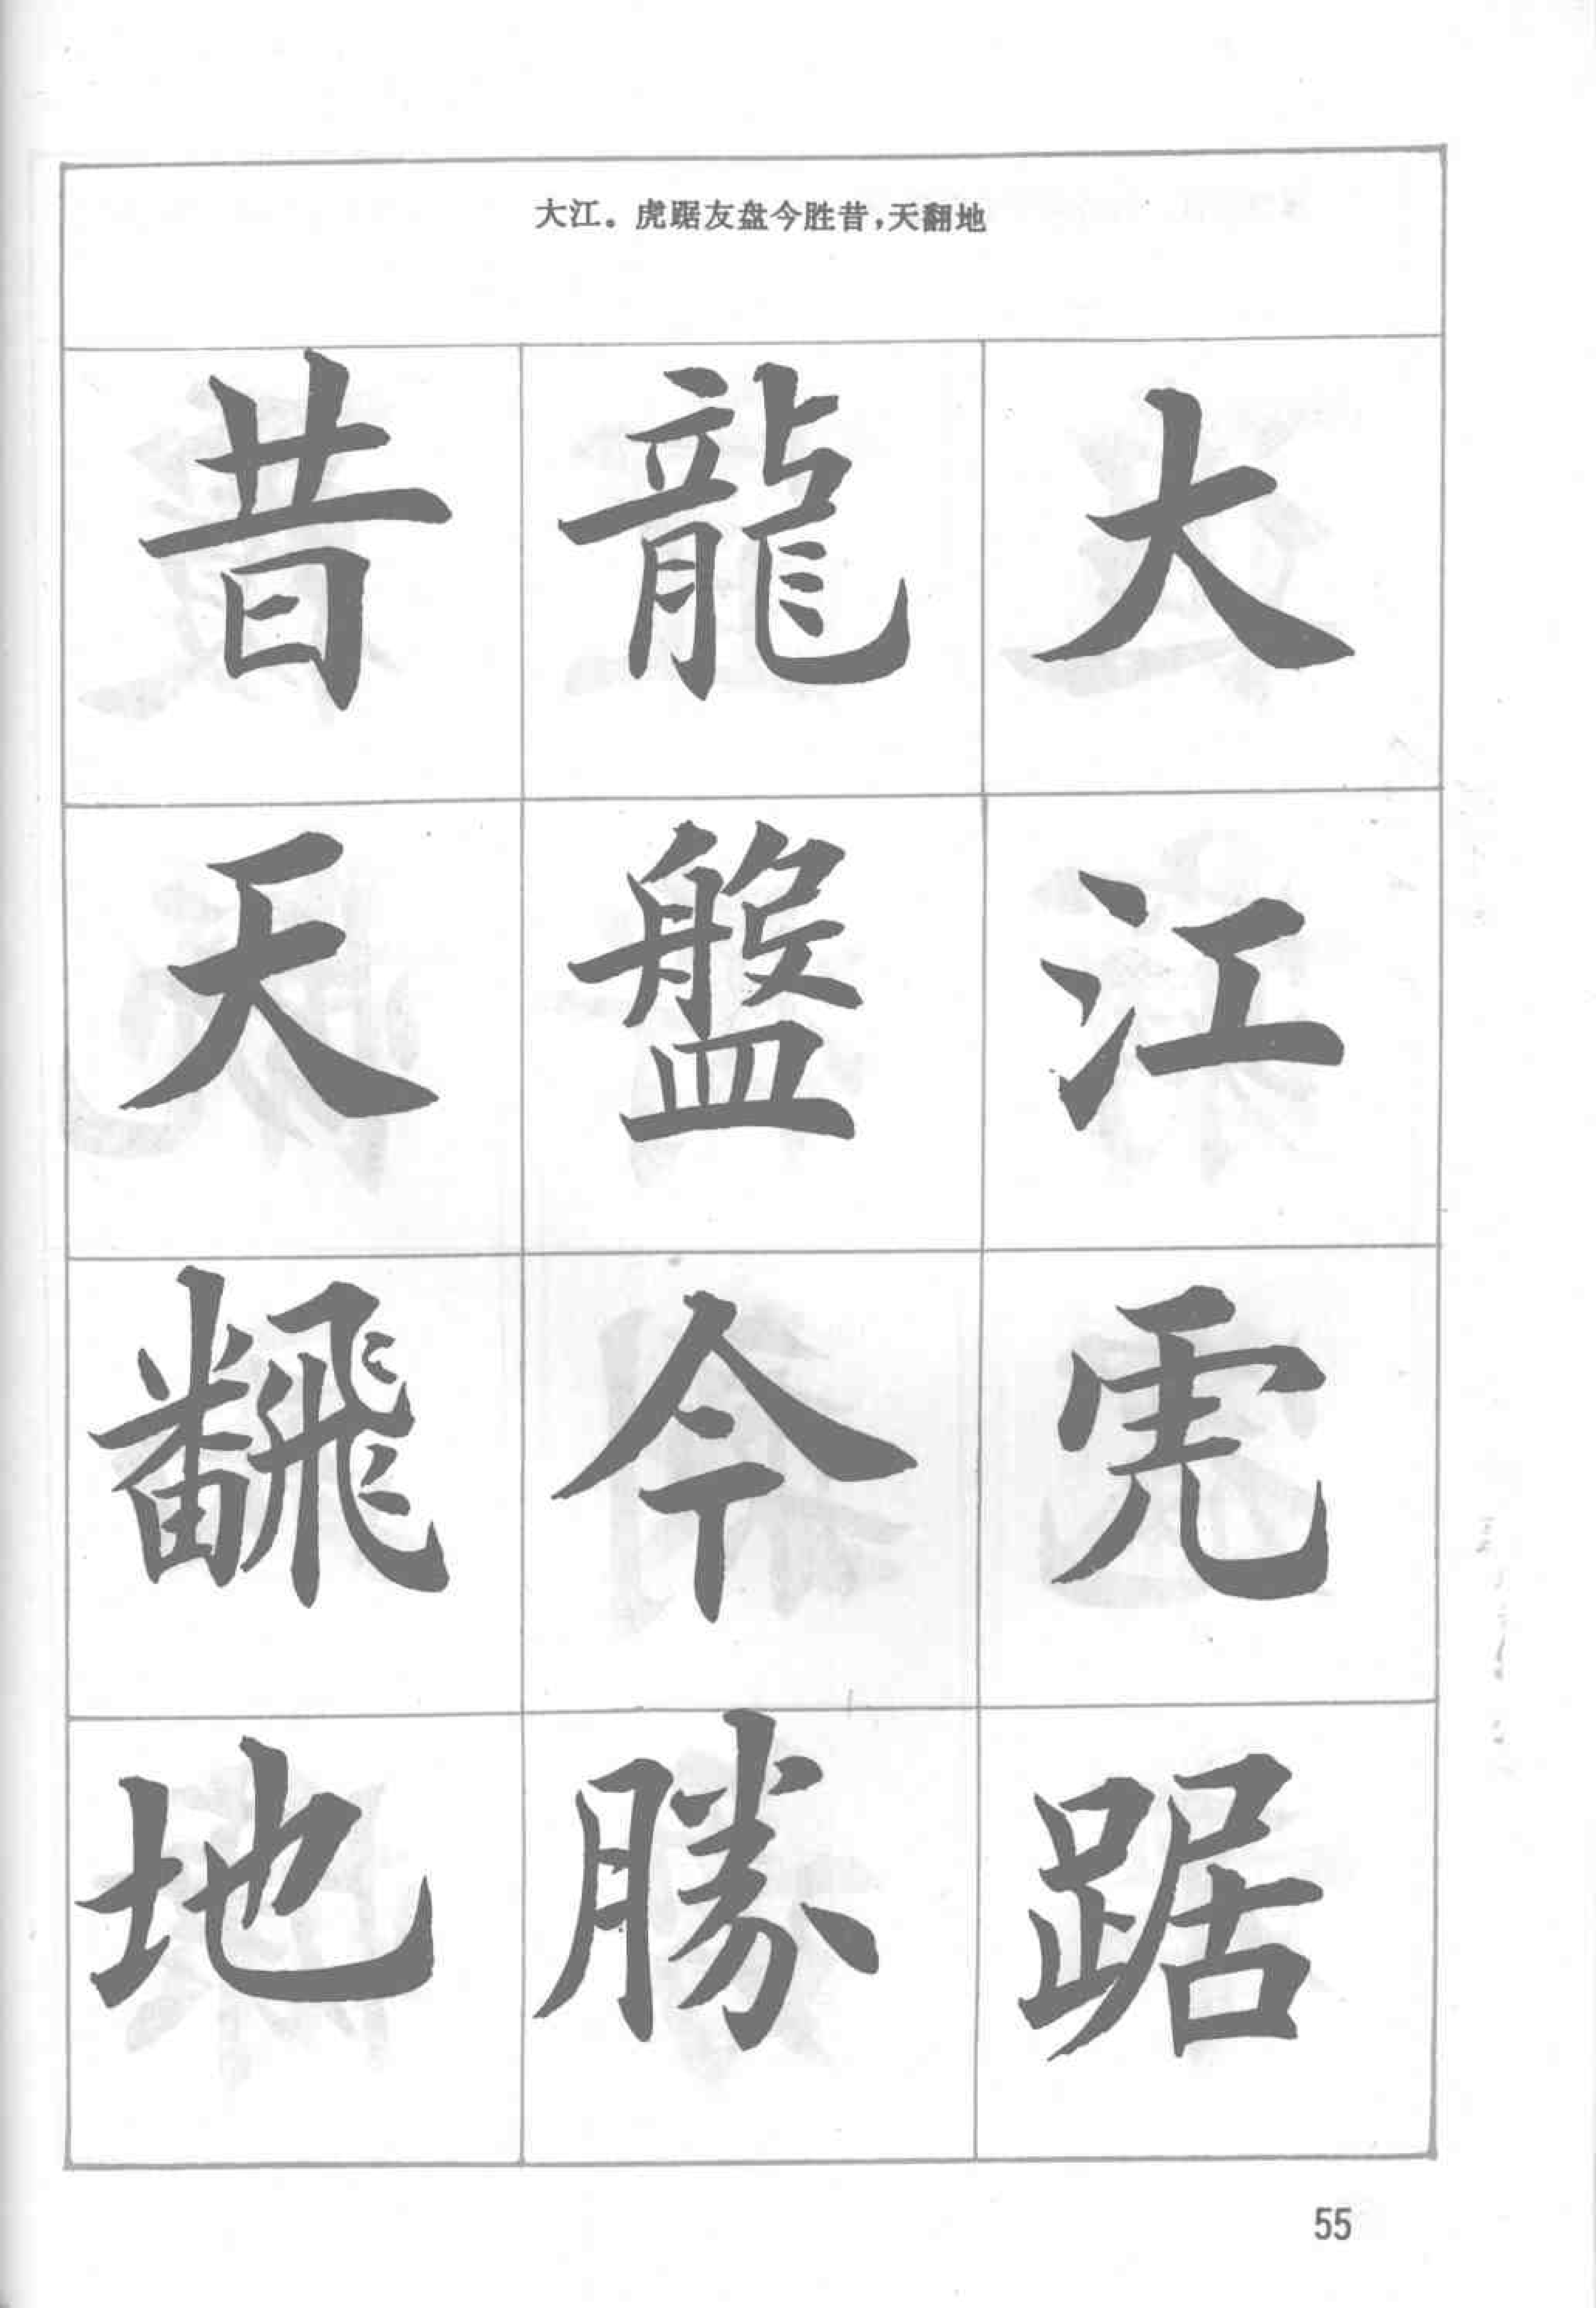 大江。虎踞友盘今胜昔，天翻地
大江虎踞
龍盤今勝
昔天飜地
55